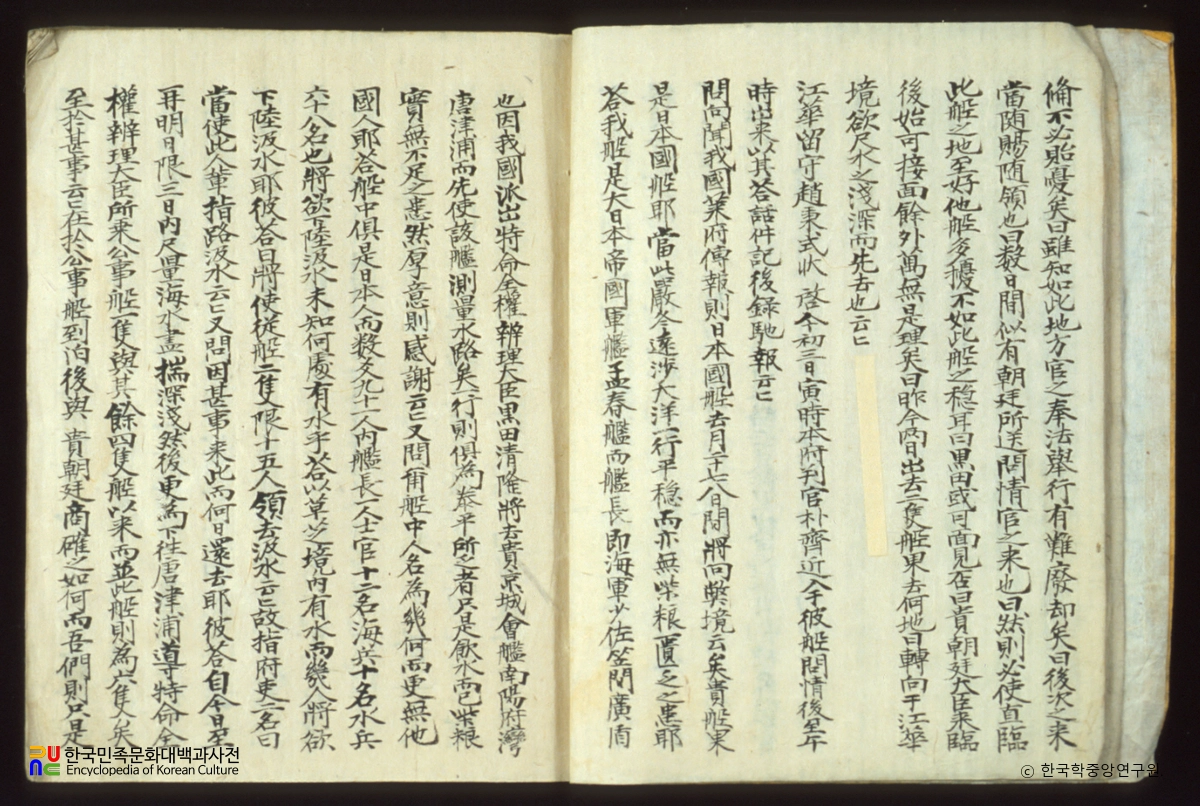 脩不必貽憂矣曰雖知如此地方官之奉法擧行有難廢却矣曰後次之来
當随賜随領也曰数日間似有朝廷所送問情官之来也曰然則必使直臨
此船之地至好他船多擾不如此船之穏耳曰黒田或可面見否曰貴朝廷大臣来臨
後始可接面餘外萬無是理矣曰昨今両日出去二隻船果去何地曰轉向于江華
境欲尺水之淺深而先去也云〻
江華留守趙秉式狀 啓今初三日寅時本府判官朴齊近入于彼船問情後至午
時出来以其答話件記後録馳報云〻
問向聞我國萊府傳報則日本國船去月二十七八日間將向弊境云矣貴船果
是日本國船耶當此嚴冬遠渉大洋一行平穏而亦無柴粮匱乏之患耶
答我船是大日本帝國軍艦孟春艦而艦長即海軍少佐笠間廣盾
也因我國派出特命全權辨理大臣黒田清隆將去貴京城會艦南陽府灣
唐津浦而先使該艦測量水路矣一行則俱為泰平所乏者只是飲水而已柴粮
實無不足之患然厚意則感謝云〻又問爾船中人名為幾何而更無他
國人耶答船中俱是日本人而数爻九十一人内艦長一人士官十二名海兵十名水兵
六十八名也將欲下陸汲水未知何處有水乎答以草芝境内有水而幾人將欲
下陸汲水耶彼答曰將使從船二隻限十五人領去汲水云〻故指府吏一名曰
當使此人輩指路汲水云〻又問因甚事来此而何日還去耶彼答自今日至
再明日限三日内尺量海水盡揣深淺然後更為下往唐津浦導特命全
權辨理大臣所乗公事船一隻與其餘四隻船以来而並此船則為六隻矣
至於甚事云〻在於公事船到泊後與 貴朝廷商確之如何而吾們則只是
한국민족문화대백과사전
Encyclopedia of Korean Culture
© 한국학중앙연구원